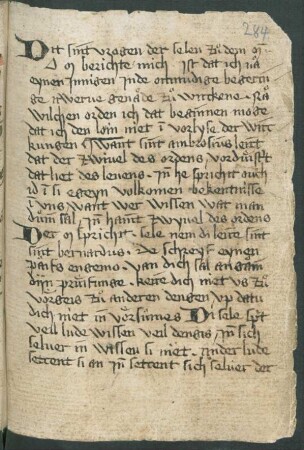 284
Dit sint vrogen der selen zů dem
berichte mich ist dat ich va
eynen Innigen Inde oitmudige begerin
ge irwerue genade zů wirckene
wilchen orden ich dat beginnen moge
dat ich den loin niet i vorlyse der wir
kungen want sint ambrosius leirt
dat der zwiuel des ordens
dat liet des leuens In he spricht ouch
id i si egeyn volkomen bekentnisse
i vns want wer wissen wat man
důyn sal In haint zwyuel des ordens
Der spricht sele nem di leire sint
sint bernardus De schreyf eynen
pais engemo van dich sal angain
důyn průifunge kere dich niet vs zů
vorgeis zů anderen dengen vp datu
dich niet in vorsumes Di sele spt
veil lude wissen veil dengis in sich
seluer in wissen si niet ander lude
settent si an in settent sich seluer der